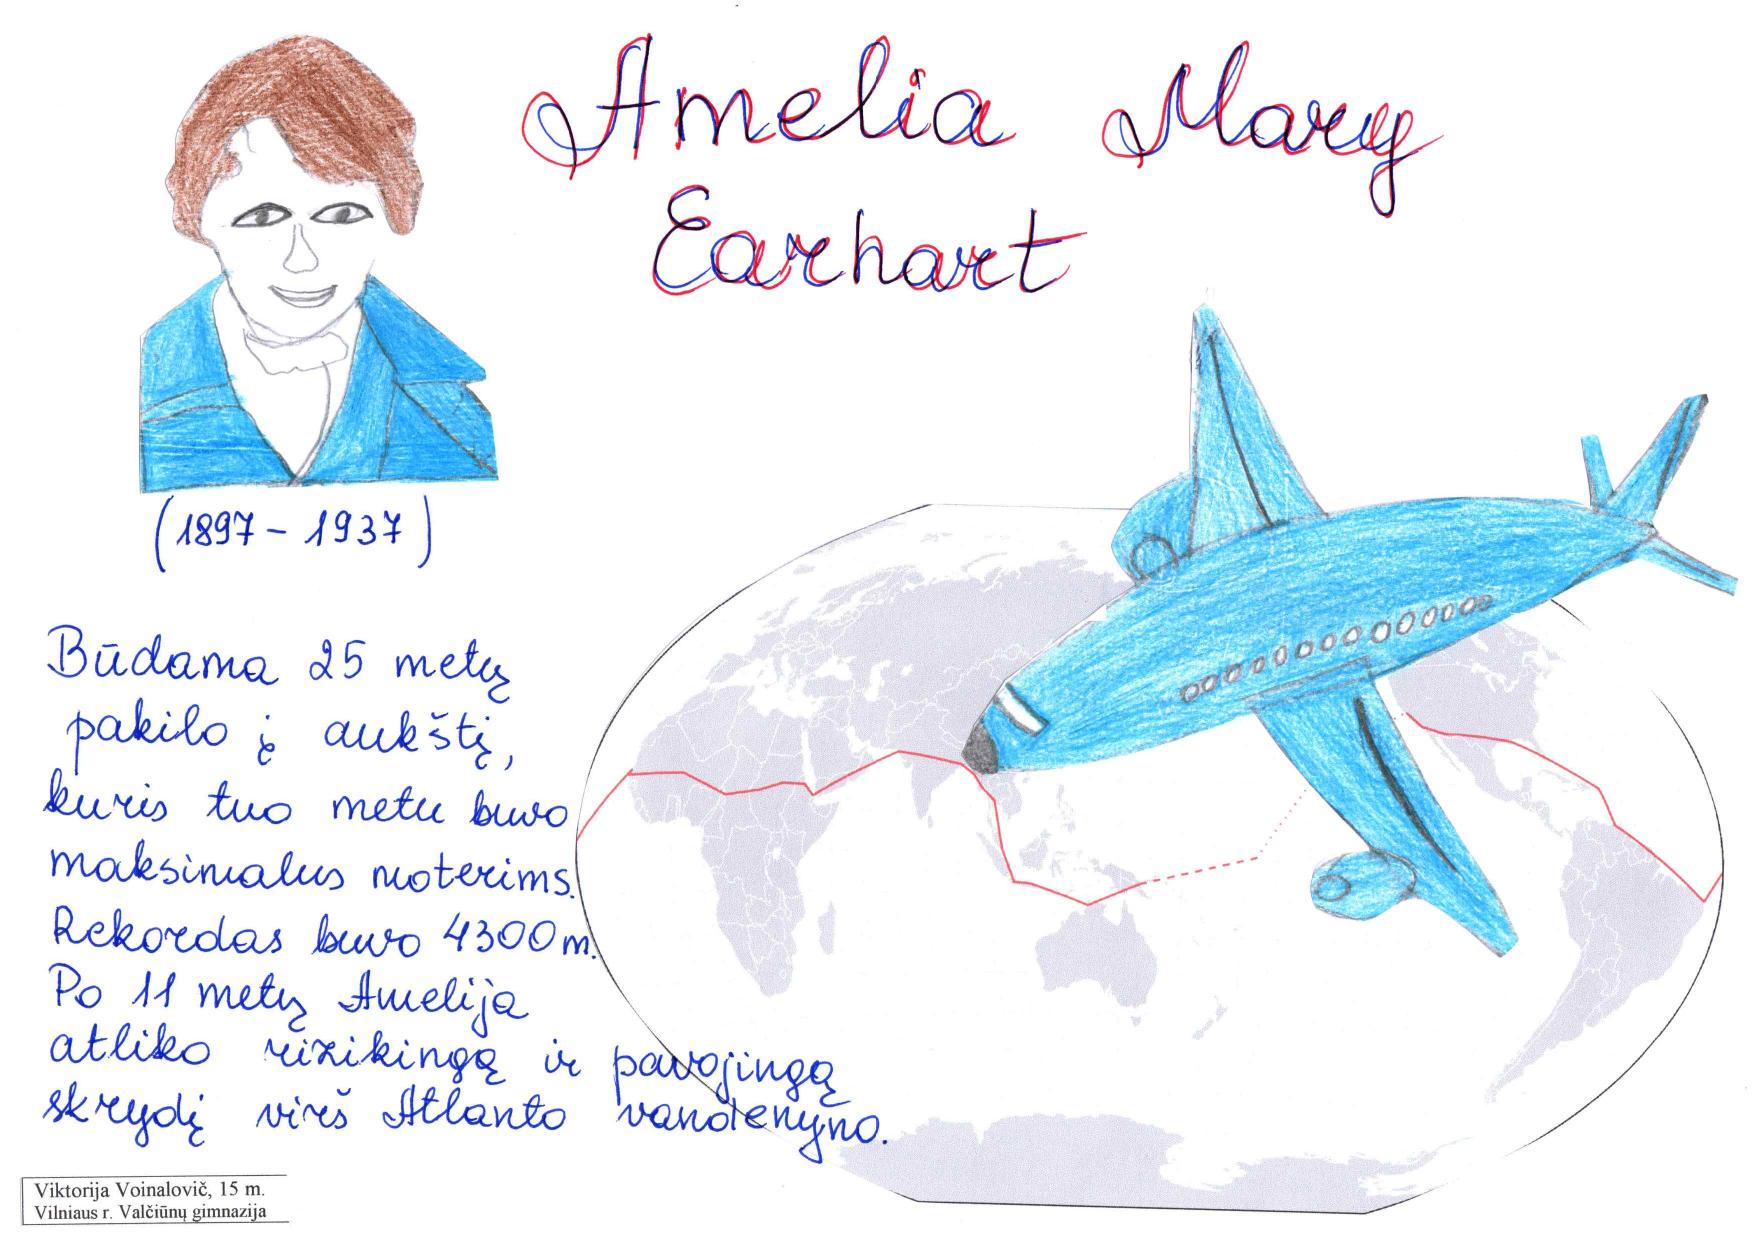 Amelia Mary
Earhart
(1897 - 1937)
Būdama 25 metų
pakilo į aukštį,
kuris tuo metu buvo
maksimalus moterims.
Rekordas buvo 4300 m.
Po 11 metų Amelija
atliko rizikingą ir pavojingą
skrydį virš Atlanto vandenyno.
Viktorija Voinalovič, 15 m.
Vilniaus r. Valčiūnų gimnazija